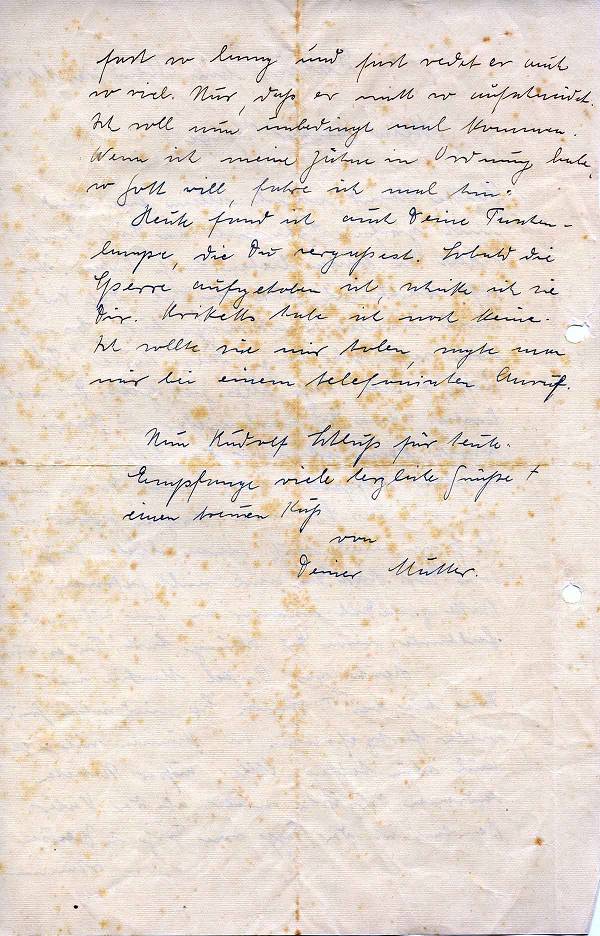 fast so lang und fast redet er auch
so viel. Nur, daß er nicht so aufschneidet.
Ich soll nun unbedingt mal kommen.
Wenn ich meine Zähne in Ordnung habe,
so Gott will, fahre ich mal hin.
Heute fand ich auch Deine Taschen-
lampe, die Du vergaßest. Sobald die
Sperre aufgehoben ist, schicke ich sie
Dir. Briketts habe ich noch keine.
Ich sollte sie mir holen, sagte man
mir bei einem telefonischen Anruf.
Nun Rudolf Schluß für heute.
Empfange viele herzliche Grüße +
einen treuen Kuß
von
Deiner Mutter.